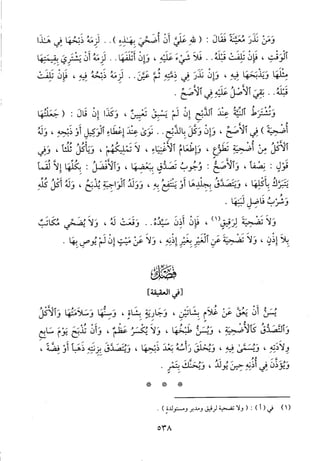 ومن نذر معينة فقال : ( لله علي أن أضحي بهذه ) . . لزمه ذبحها في هذا
الوقت ، فإن تلفت قبله . . فلا شيء عليه ، وإن أتلفها . . لزمه أن يشتري بقيمتها
مثلها ويذبحها فيه ، وإن نذر في ذمته ثم عين . . لزمه ذبحه فيه ، فإن تلفت
قبله . . بقي الأصل عليه في الأصح .
وتشترط النية عند الذبح إن لم يسبق تعيين ، وكذا إن قال : ( جعلتها
أضحية ) في الأصح ، وإن وكل بالذبح . . نوى عند إعطاء الوكيل أو ذبحه ، وله
الأكل من أضحية تطوع ، وإطعام الأغنياء ، لا تمليكهم ، ويأكل ثلثا ، وفي
قول : نصفا ، والأصح : وجوب تصدق ببعضها ، والأفضل : بكلها إلا لقما
يتبرك بأكلها ، ويتصدق بجلدها أو ينتفع به ، وولد الواجبة يذبح ، وله أكل كله
وشرب فاضل لبنها .
ولا تضحية لرقيق (١) ، فإن أذن سيده . . وقعت له ، ولا يضحي مكاتب
بلا إذن ، ولا تضحية عن الغير بغير إذنه ، ولا عن ميت إن لم يوص بها .
فصل
[في العقيقة]
يسن أن يعق عن غلام بشاتين ، وجارية بشاة ، وسنها وسلامتها والأكل
والتصدق كالأضحية ، ويسن طبخها ، ولا يكسر عظم ، وأن تذبح يوم سابع
ولادته ، ويسمى فيه ، ويحلق رأسه بعد ذبحها ، ويتصدق بزنته ذهبا أو فضة ،
ويؤذن في أذنه حين يولد ، ويحنك بتمر .
* * *
(١) في (أ) : ( ولا تضحية لرقيق ومدبر ومستولدة ) .
٥٣٨